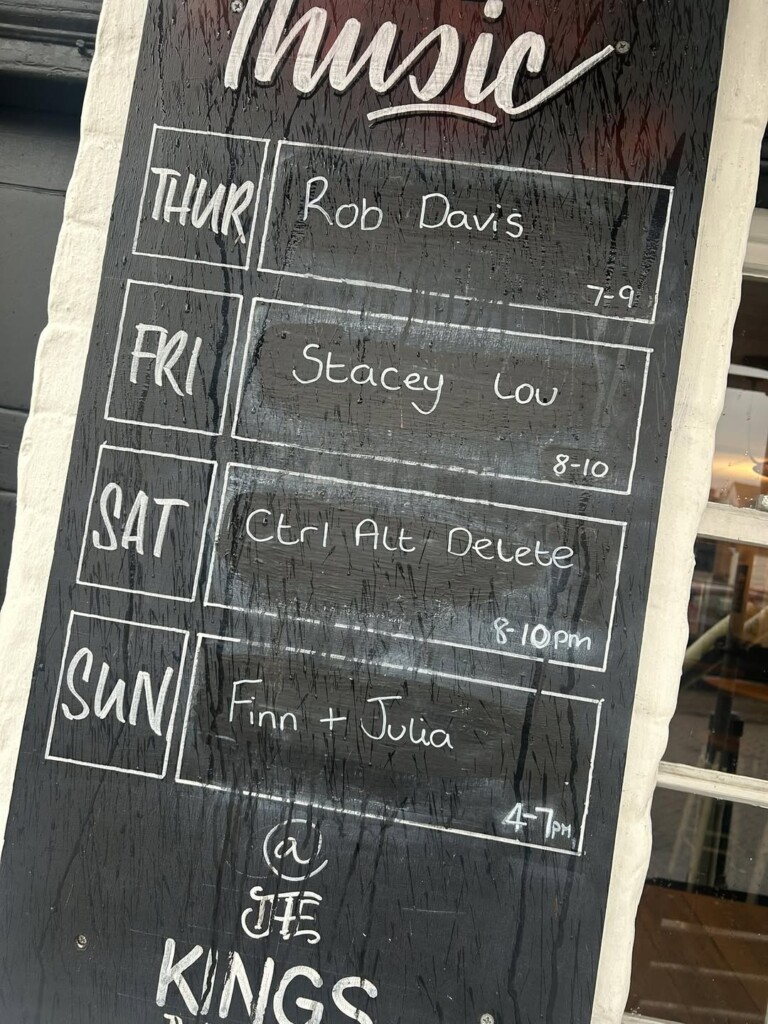 Music
THUR
Rob Davis
7-9
FRI
Stacey Lou
8-10
SAT
Ctrl Alt Delete
8-10pm
SUN
Finn + Julia
4-7pm
@
THE
KINGS